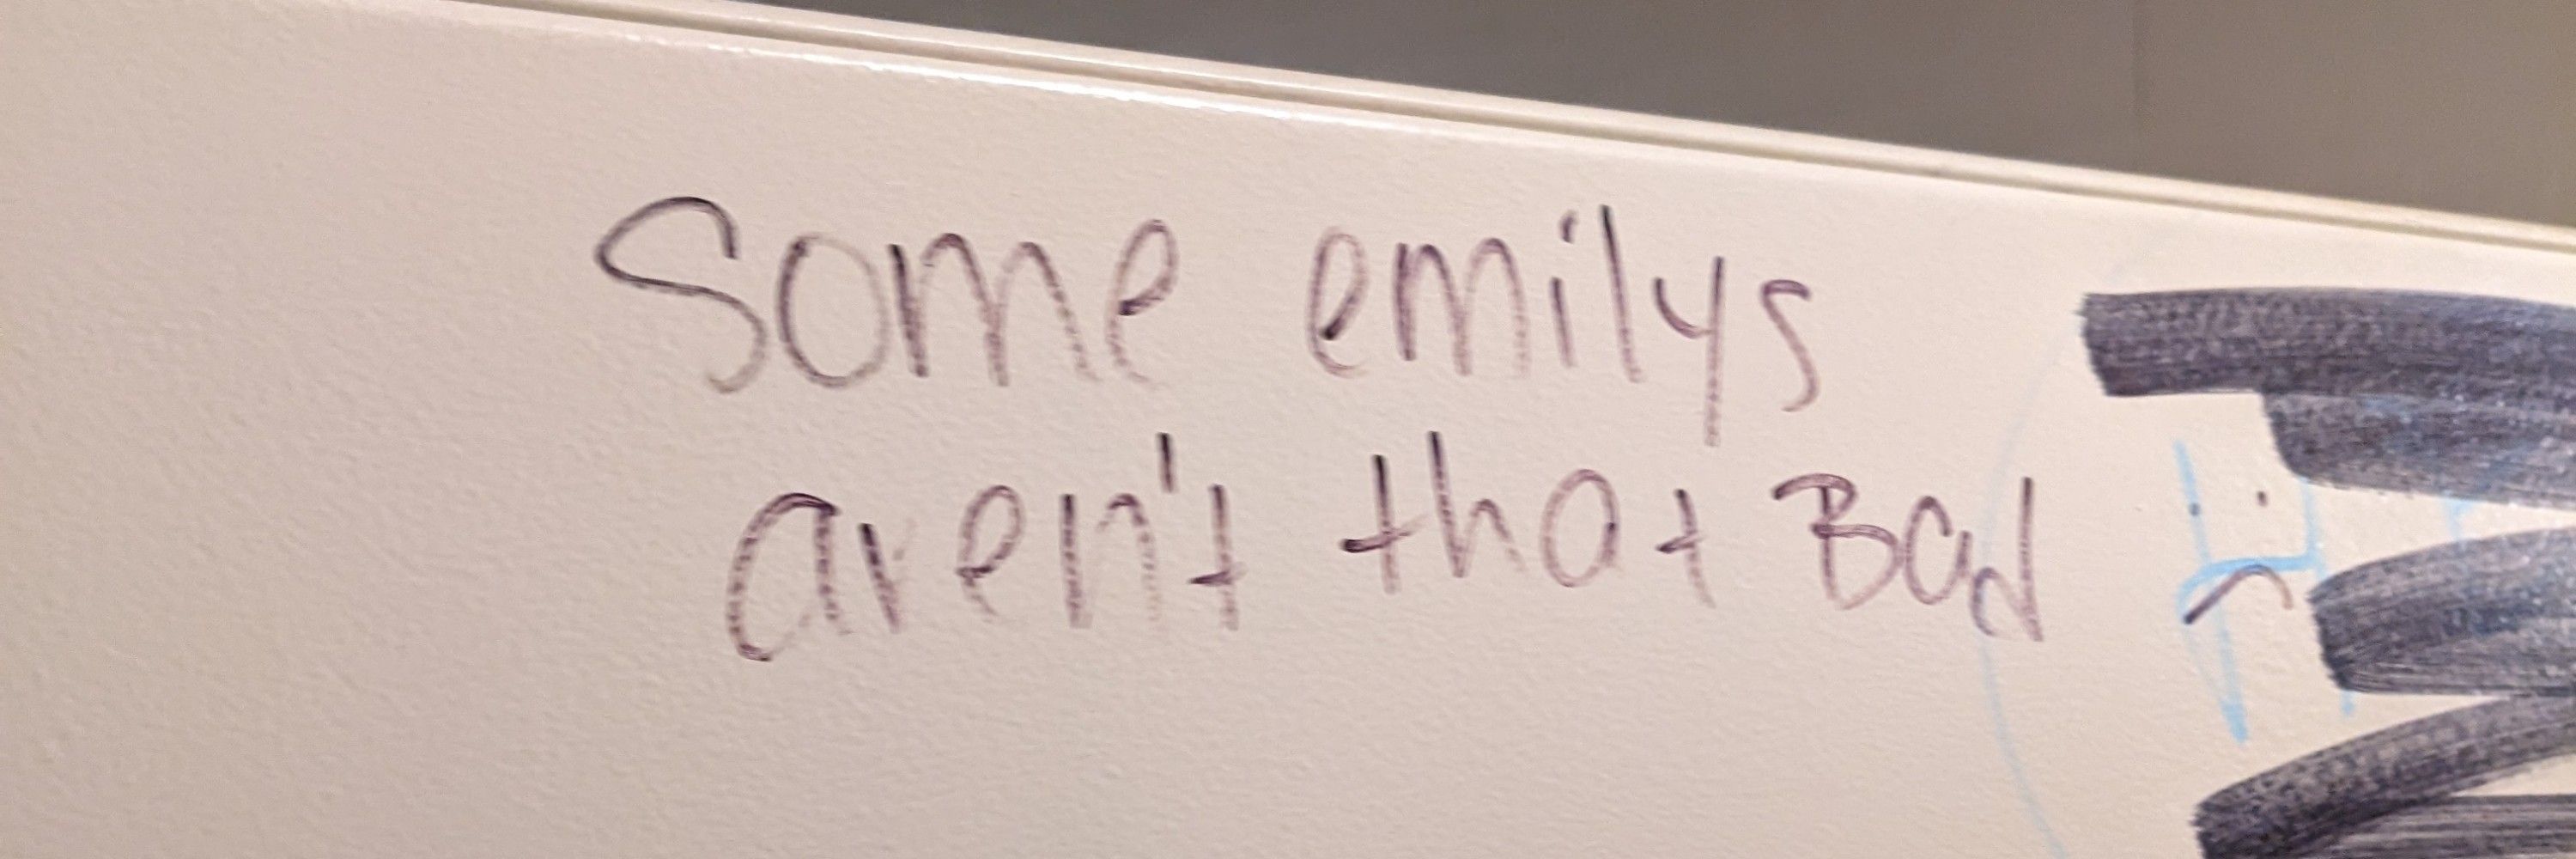 Some emilys
aren't that Bad
H